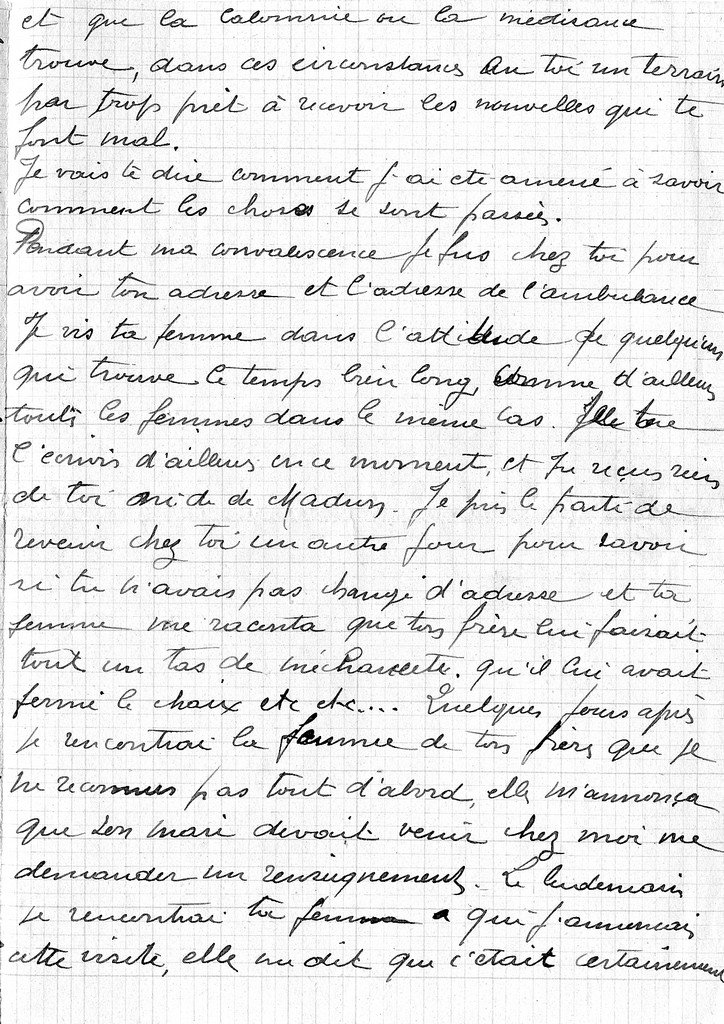 et que la calomnie ou la médisance
trouve, dans ces circonstances en toi un terrain
par trop prêt à recevoir les nouvelles qui te
font mal.
Je vais te dire comment j'ai été amené à savoir
comment les choses se sont passées.
Pendant ma convalescence je fus chez toi pour
avoir ton adresse et l'adresse de l'ambulance
Je vis ta femme dans l'attitude de quelqu'un
qui trouve le temps bien long, comme d'ailleurs
toutes les femmes dans le même cas. Je te
l'écrivis d'ailleurs en ce moment, et je reçus rien
de toi ni de de Madurs. Je pris le parti de
revenir chez toi un autre jour pour savoir
si tu n'avais pas changé d'adresse et ta
femme me raconta que ton frère lui faisait
tout un tas de méchancete. qu'il lui avait
fermé le chaix etc etc.... Quelques jours après
je rencontrai la femme de ton frère que je
ne reconnus pas tout d'abord, elle m'annonça
que son mari devait venir chez moi me
demander un renseignement. Le lendemain
je rencontrai ta femme a qui j'annonçai
cette visite, elle me dit que c'était certainement